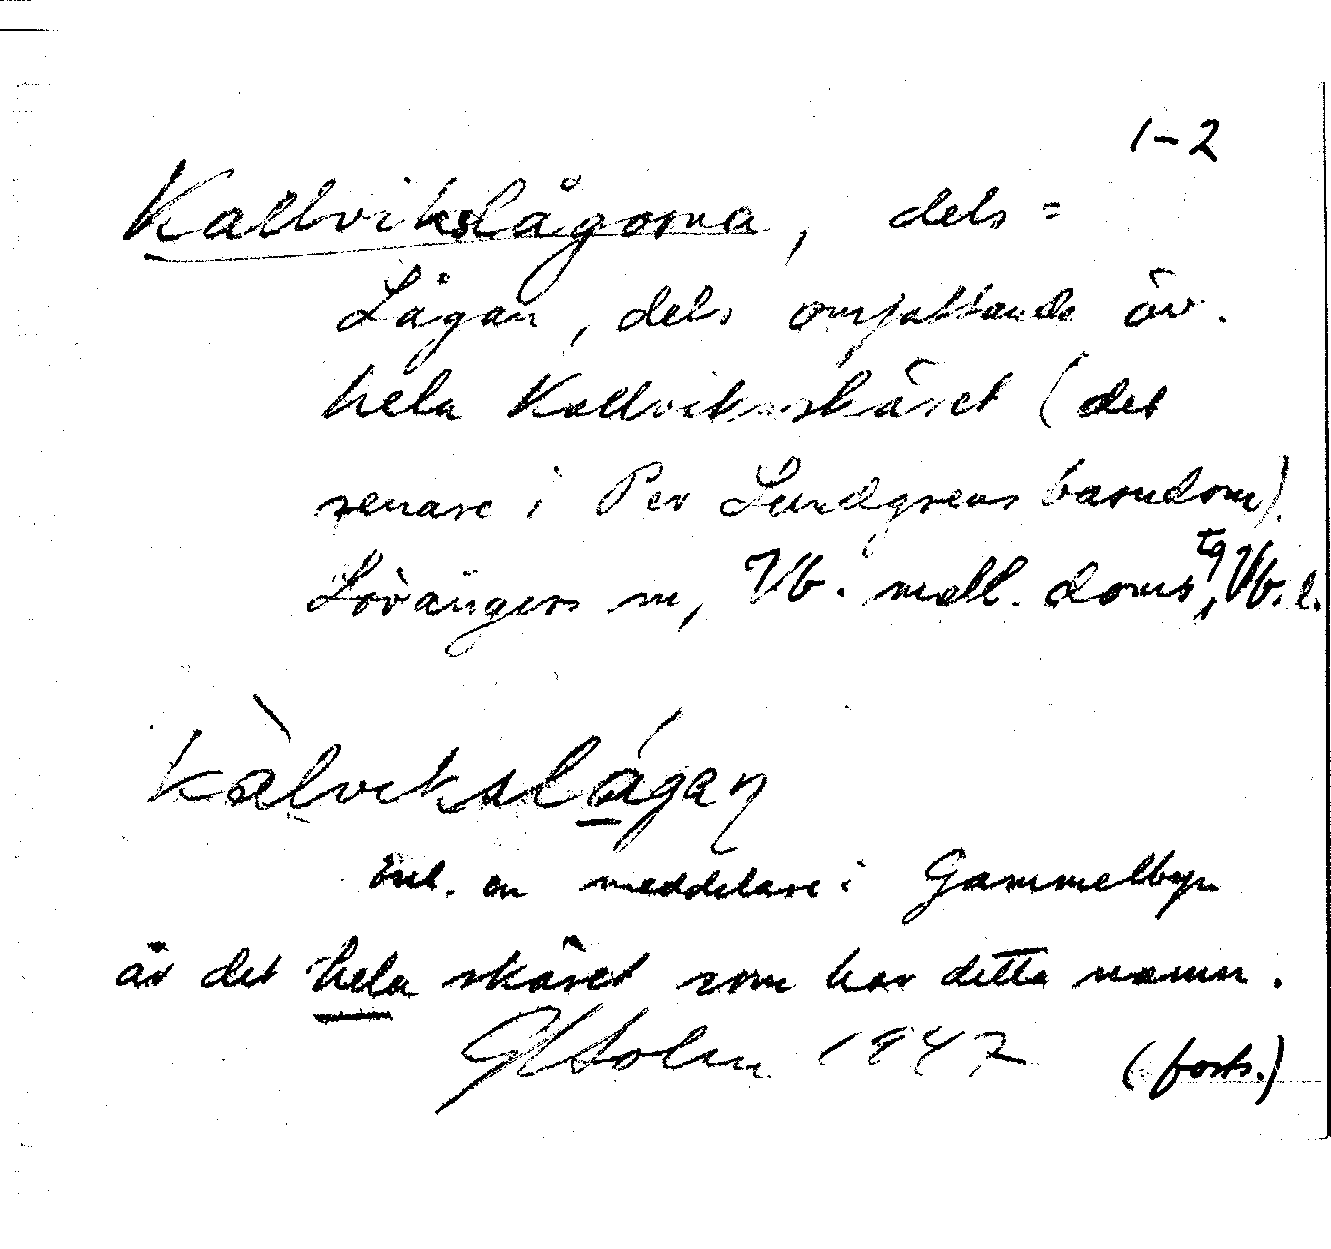 1-2
Kallvikslågorna, dels =
Lågan, dels omfattande äv.
hela Kallviksskäret (det
senare i Per Lundgrens barndom).
Lövångers sn, Vb. mell. doms tg, Vb. l.
kàlvikslágan
Enl. en meddelare i Gammelbyn
är det hela skäret som har detta namn.
Holm 1947 (forts.)